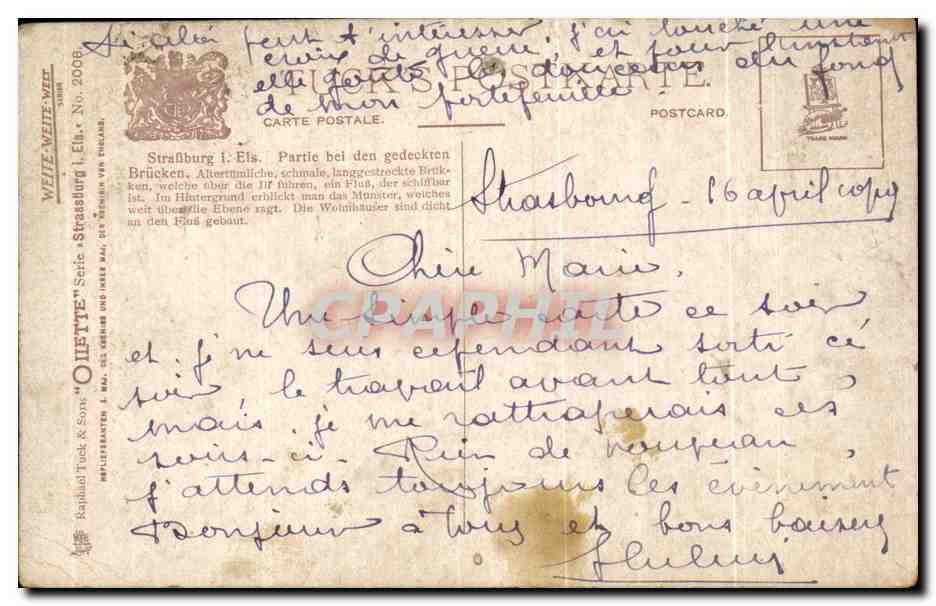 Si cela peut t'intéresser, j'ai touché une
croix de guerre, et pour l'instant
elle goute les douceurs du fond
de mon portefeuille
TUCK'S POSTKARTE.
CARTE POSTALE.
POSTCARD.
TRADE MARK
Straßburg i. Els. Partie bei den gedeckten
Brücken. Altertümliche, schmale, langgestreckte Brük-
ken, welche über die Ill führen, ein Fluß, der schiffbar
ist. Im Hintergrund erblickt man das Münster, welches
weit über die Ebene ragt. Die Wohnhäuser sind dicht
an den Fluß gebaut.
WEITE-WEITE-WELT
SERIE
Raphael Tuck & Sons' "OILETTE" Serie »Strassburg i. Els.« No. 2008.
HOFLIEFERANTEN S. MAJ. DES KOENIGS UND IHRER MAJ. DER KOENIGIN VON ENGLAND.
Strasbourg - 16 april 1919
Chère Marie,
Une simple carte ce soir
et j'ne suis cependant sorti ce
soir, le travail avant tout,
mais je me rattraperais ces
soirs-ci. Rien de nouveau,
j'attends toujours les évènement
Bonjour à tous et bons baisers
CPAPHIL